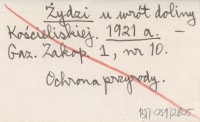 Żydzi u wrót doliny
Kościeliskiej. 1921 a. —
Gaz. Zakop. 1, nr 10.
Ochrona przyrody.
151/059/2005